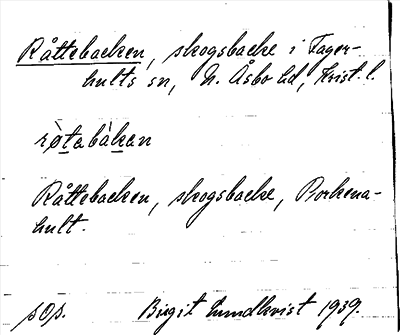 Råttebacken, skogsbacke i Fager-
hults sn, N. Åsbo hd, Krist. l.
rò̱tabàkan
Råttebacken, skogsbacke, Borkena-
hult.
sOs. Birgit Lundkvist 1939.